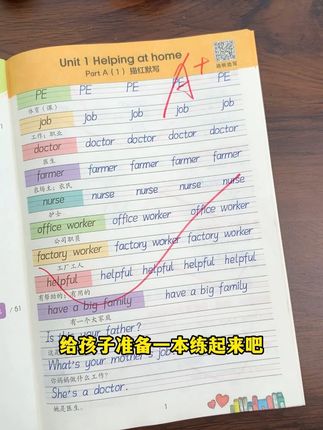 Unit 1 Helping at home
Part A (1) 描红默写
PE PE PE PE PE
体育（课）
job job job job job
工作；职业
doctor doctor doctor doctor doctor
医生
farmer farmer farmer farmer farmer
农场主；农民
nurse nurse nurse nurse nurse
护士
office worker office worker office worker
公司职员
factory worker factory worker factory worker
工厂工人
helpful helpful helpful helpful helpful
有帮助的；有用的
have a big family have a big family
有一个大家庭
Is this your father?
给孩子准备一本练起来吧
What's your mother's job?
你妈妈做什么工作？
She's a doctor.
她是医生。
1
A+
/ 61